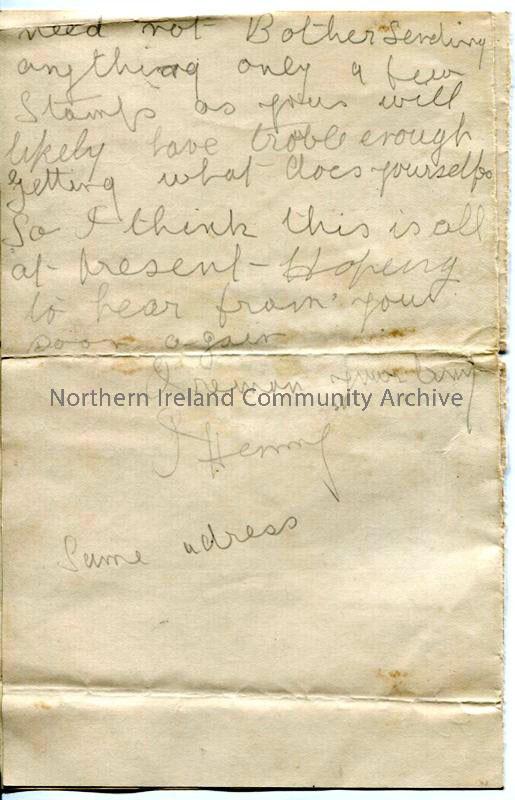 need not Bother Sending
anything only a few
Stamps as yous will
likely have troble enough
getting what does yourselfs
So I think this is all
at Present - Hopeing
to hear from you
soon again
I remain
Northern Ireland Community Archive
J Henry
Same adress